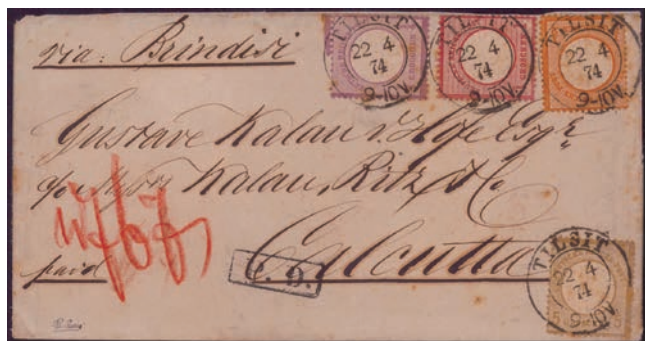 via: Brindisi
TILSIT
22 4
74
9-10V.
TILSIT
22 4
74
9-10V.
TILSIT
22 4
74
9-10V.
Gustave Kalau v. Hofe Esqr.
Kalau, Ritz & Co.
Calcutta
paid
P. D.
TILSIT
22 4
74
9-10V.
5
5